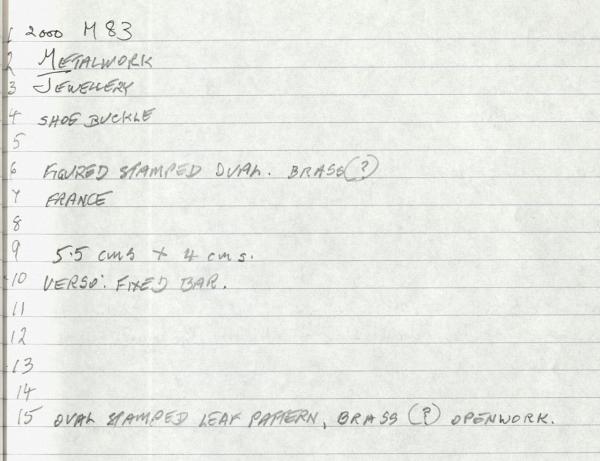 1 2000 M 83
2 METALWORK
3 JEWELLERY
4 SHOE BUCKLE
5
6 FIGURED STAMPED OVAL. BRASS(?)
7 FRANCE
8
9 5.5 cms + 4 cms.
10 VERSO: FIXED BAR.
11
12
13
14
15 OVAL STAMPED LEAF PATTERN, BRASS (?) OPENWORK.